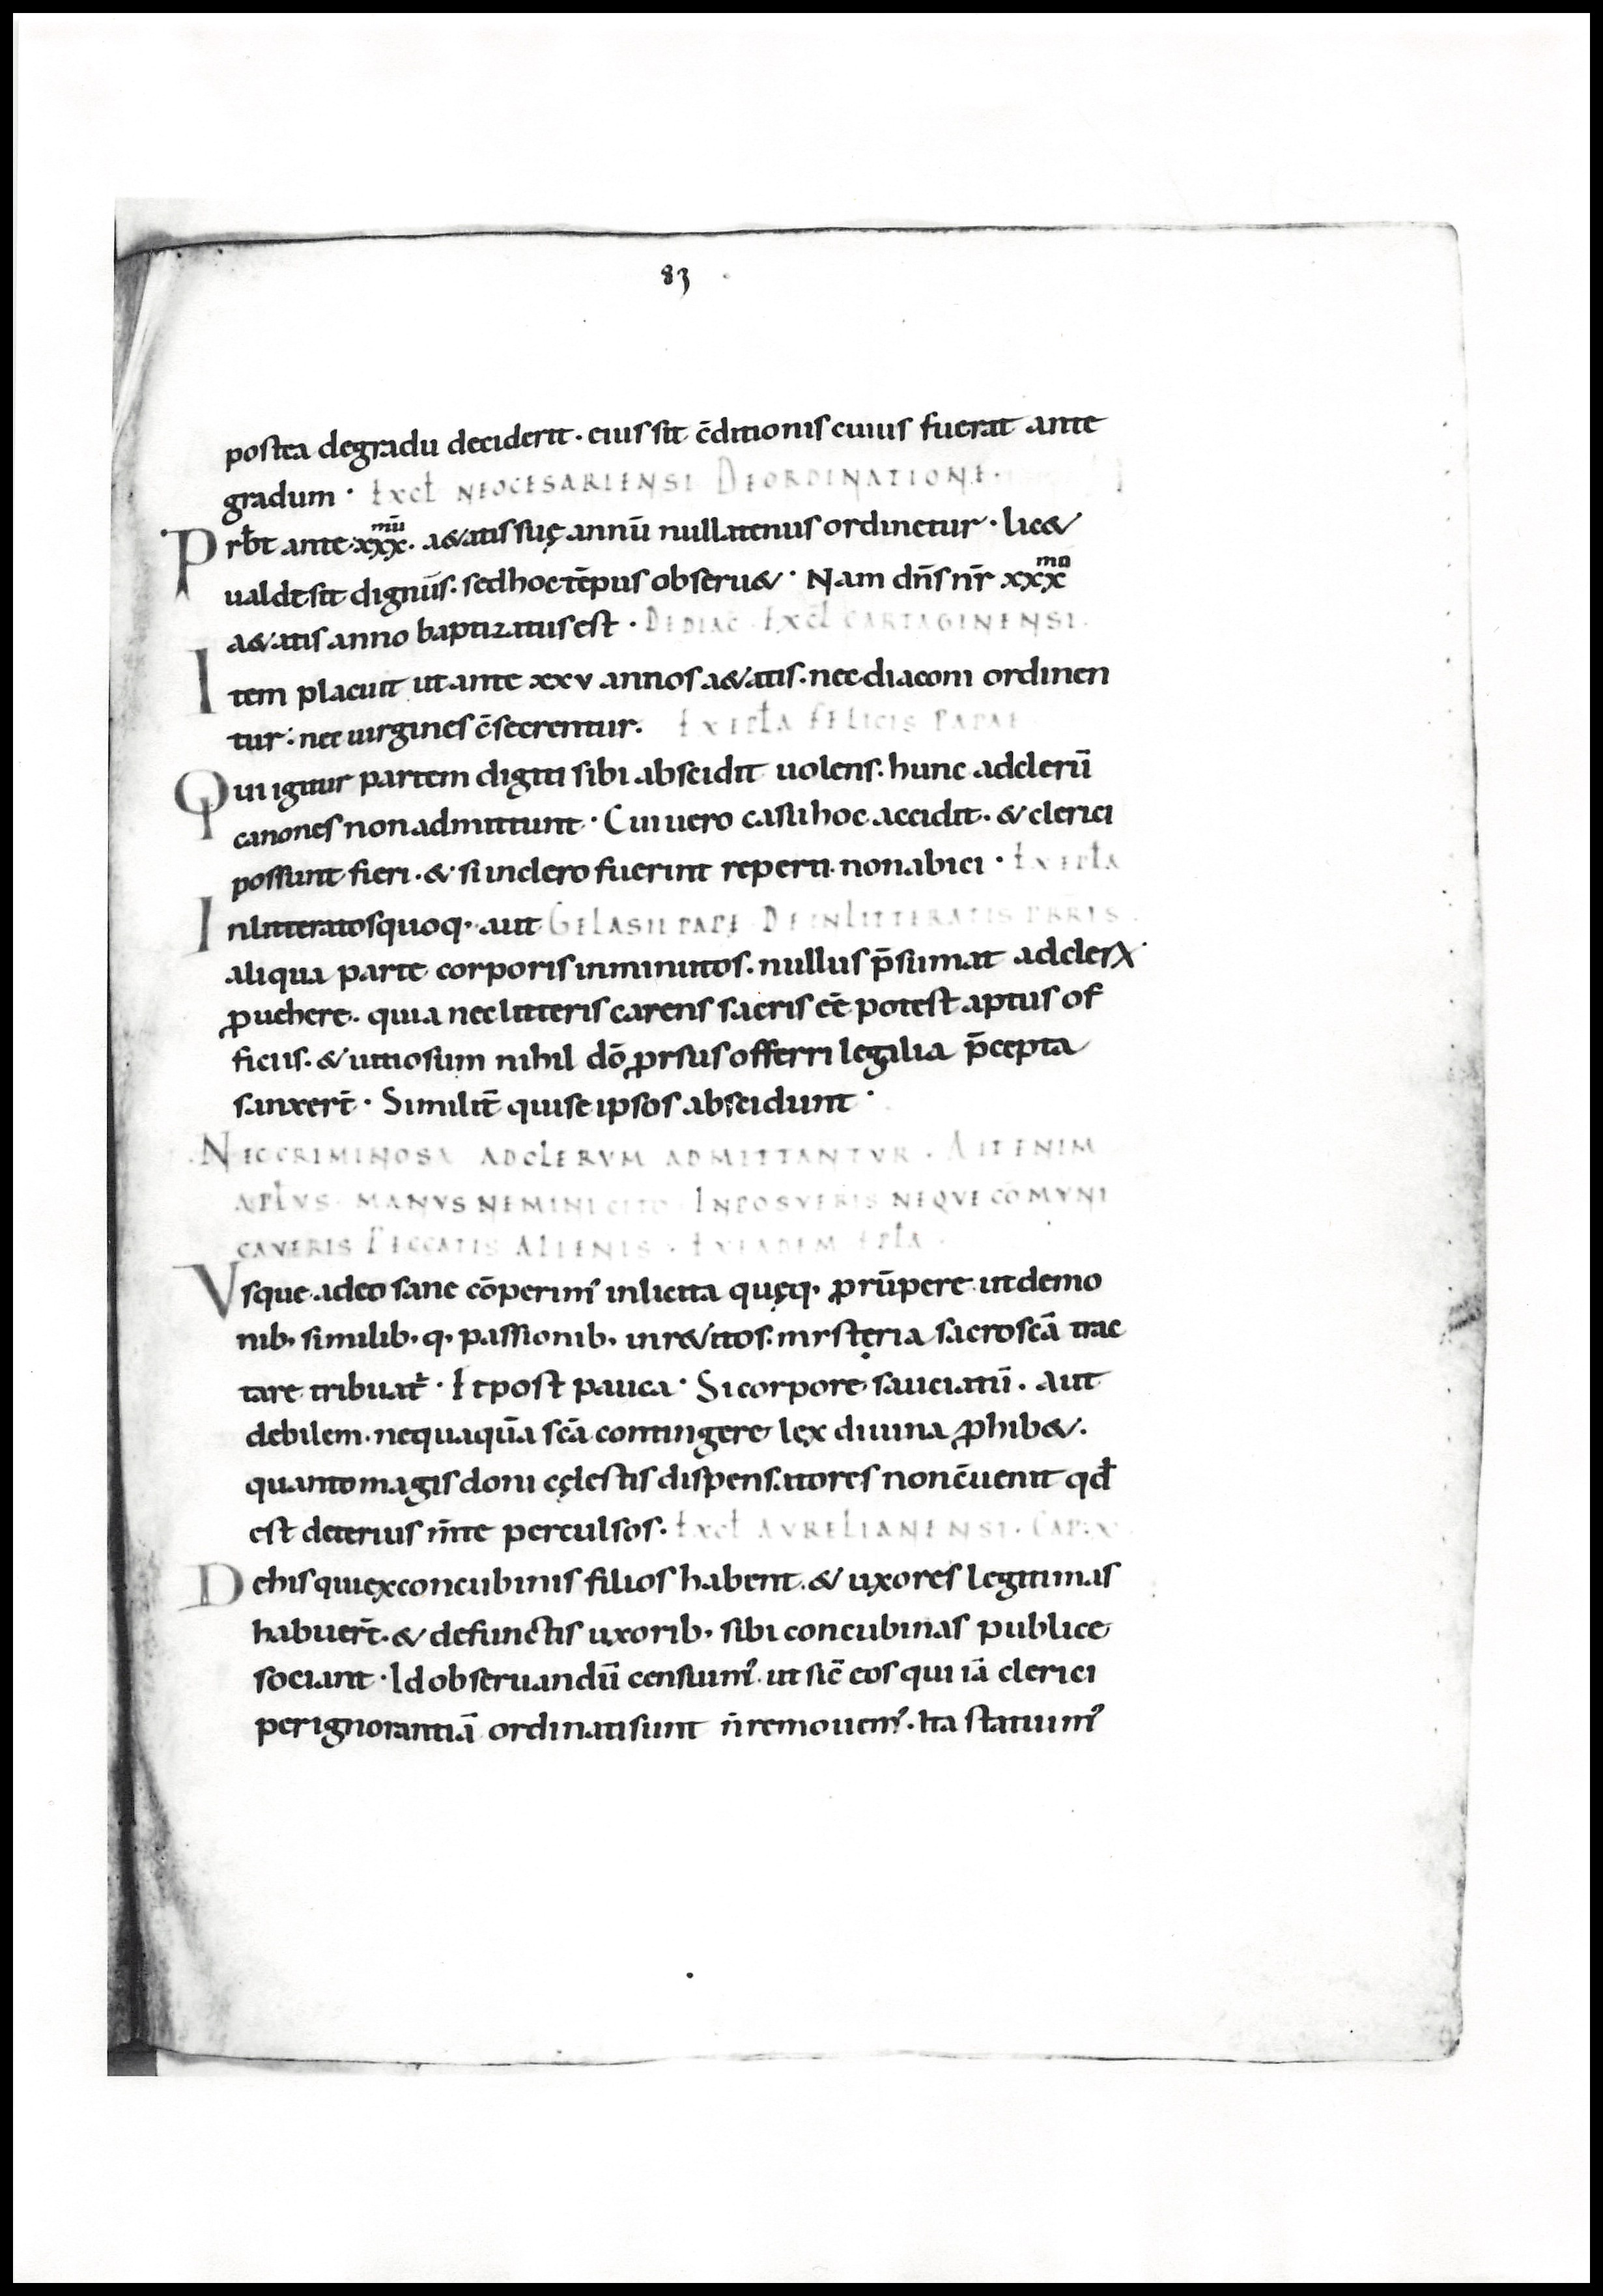 83
postea degradu deciderit · eius sit c̄ditionis cuius fuerat ante
gradum · Ex cł NEOCESARIENSI DE ORDINATIONE ·
Prb̄t ante xxx mū · a&atis suę annū nullatenus ordinetur · lic&
ualde sit dignus̄ · sed hoc tēpus obseru& · Nam dn̄s nr̄ xxx mo
a&atis anno baptizatus est · DE DIAC̄ · EX C̄L CARTAGINENSI ·
Item placuit ut ante xxv annos a&atis · nec diaconi ordinen
tur · nec uirgines c̄secrentur · EX EPŁA FELICIS PAPAE
Qui igitur partem digiti sibi abscidit uolens · hunc ad clerū
canones non admittunt · Cui uero casu hoc accidit · & clerici
possunt fieri · & si in clero fuerint reperti · non abici · EX EPŁA
Inlitteratos quoq· aut GELASII PAPĘ DE INLITTERATIS PBRIS ·
aliqua parte corporis inminutos · nullus p̄sumat ad cleꝝ ·
ꝓuehere · quia nec litteris carens sacris eē potest aptus of
ficiis · & uitiosum nihil dō ꝓrsus offerri legalia p̄cepta
sanxert̄ · Similit̄ qui se ipsos abscidunt ·
NEC CRIMINOSA AD CLERVM ADMITTANTVR · AIT ENIM
APŁVS · MANVS NEMINI CITO INPOSVERIS NEQVE CŌMVNI
CAVERIS PECCATIS ALIENIS · EX EADEM EPŁA ·
Vsque adeo sane cōperim᾿ inlicita quęq· ꝓrūpere ut demo
nib· similib· q· passionib· inr&itos · mysteria sacrosc̄a trac
tare tribuat᾿ · Et post pauca · Si corpore sauciatū · aut
debilem · nequaquā sc̄a contingere lex diuina ꝓhib& ·
quanto magis doni cęlestis dispensatores non c̄uenit qđ
est deterius m̄te perculsos · EX CŁ AVRELIANENSI · CAP · X
De his qui ex concubinis filios habent · & uxores legitimas
habuert̄ · & defunctis uxorib· sibi concubinas publice
sociant · Id obseruandū censuim᾿ · ut sic̄ eos qui iā clerici
per ignorantiā ordinati sunt n̄ remouem᾿ · Ita statuim᾿